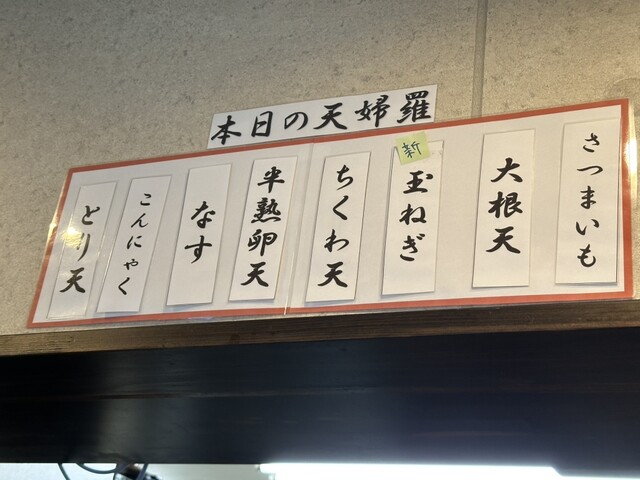 本日の天婦羅
さつまいも
大根天
新
玉ねぎ
ちくわ天
半熟卵天
なす
こんにゃく
とり天